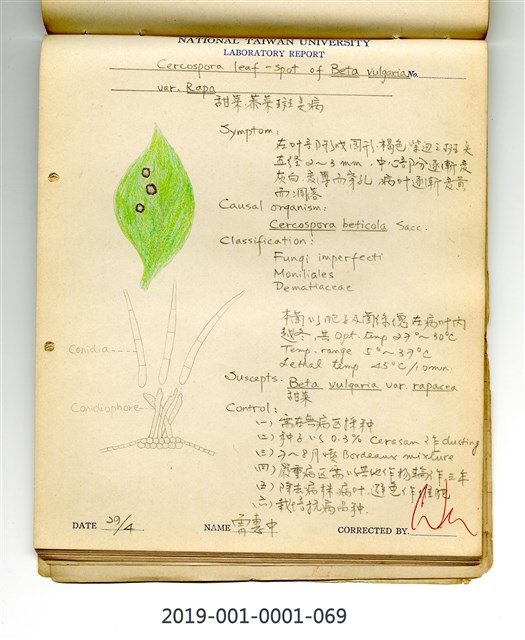 NATIONAL TAIWAN UNIVERSITY
LABORATORY REPORT
Cercospora leaf-spot of Beta vulgaris No.
var. Rapa
甜菜.菾菜斑点病
Symptom:
在叶部形成圆形.褐色.紫边之斑点
直径2~3 mm. 中心部分逐漸变
灰白.变薄而穿孔.病叶逐漸变黄
而凋落
Causal organism:
Cercospora beticola Sacc.
Classification:
Fungi imperfecti
Moniliales
Dematiaceae
本菌以胞子及菌絲.在病叶内
越冬.其 Opt. temp 27°~30°C
Temp. range 5°~37°C
Lethal temp 45°C/10min.
Conidia
Conidiophore
Suscepts: Beta vulgaria var. rapacea
甜菜
Control:
(一) 需在無病区採种
(二) 种子以0.3% Cerasan 作 dusting
(三) 7~8月噴 Bordeaux mixture
(四) 嚴重病区需以其他作物輪作三年
(五) 除去病株.病叶.避免作堆肥
(六) 栽培抗病品种.
DATE 29/4
NAME 惠中
CORRECTED BY.
2019-001-0001-069